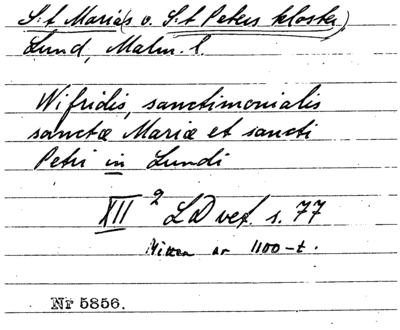 S:t Maria(s o. S:t Peters kloster)
Lund, Malm. l.
Wifridis, sanctimonialis
sanctæ Mariæ et sancti
Petri in Lundi
XII 2 LD vet. s. 77
Mitten av 1100-t.
Nr 5856.